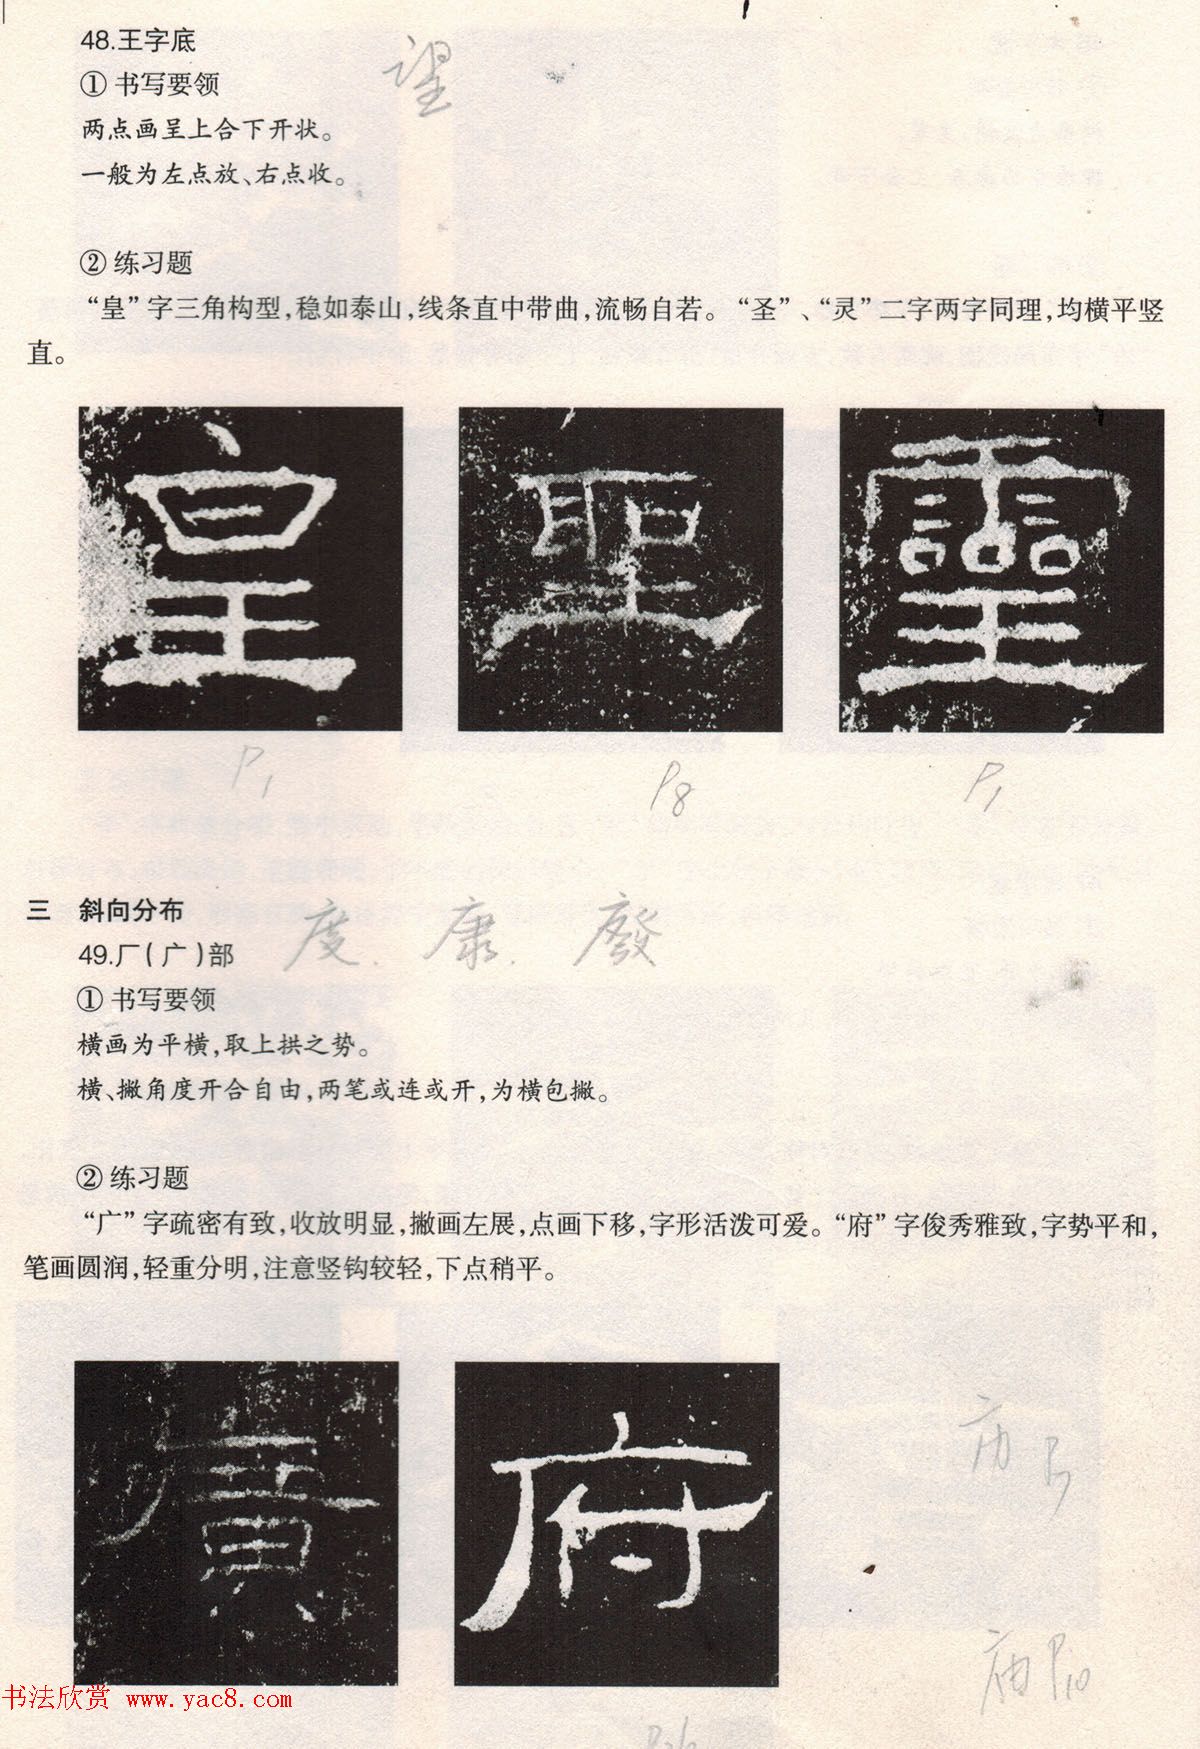 48.王字底
望
① 书写要领
两点画呈上合下开状。
一般为左点放、右点收。
② 练习题
“皇”字三角构型,稳如泰山,线条直中带曲,流畅自若。“圣”、“灵”二字两字同理,均横平竖
直。
皇
聖
靈
P1
P8
P1
三 斜向分布
度.康.廢
49.厂(广)部
① 书写要领
横画为平横,取上拱之势。
横、撇角度开合自由,两笔或连或开,为横包撇。
② 练习题
“广”字疏密有致,收放明显,撇画左展,点画下移,字形活泼可爱。“府”字俊秀雅致,字势平和,
笔画圆润,轻重分明,注意竖钩较轻,下点稍平。
廣
府
P10
书法欣赏 www.yac8.com